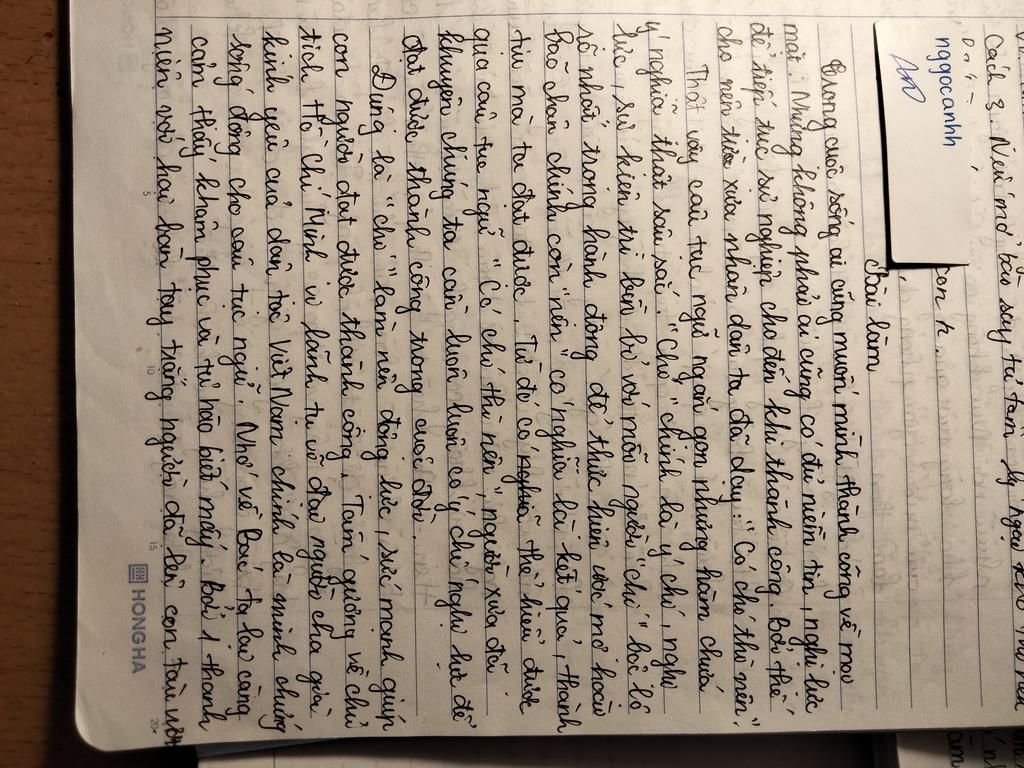 Cách 3. Nếu mở bài suy từ tâm lý
ngọcanhh
con k.
Bài làm
Trong cuộc sống ai cũng muốn mình thành công về mọi
mặt. Nhưng không phải ai cũng có đủ niềm tin, nghị lực
để tiếp tục sự nghiệp cho đến khi thành công. Bởi thế
cho nên từ xưa nhân dân ta đã dạy: "Có chí thì nên".
Thật vậy câu tục ngữ ngắn gọn nhưng hàm chứa
ý nghĩa thật sâu sắc. "Chí" chính là ý chí, nghị
lực, sự kiên trì bền bỉ với mỗi người "chí" bộc lộ
rõ nhất trong hành động để thực hiện ước mơ hoài
bão chân chính còn "nên" có nghĩa là kết quả, thành
tựu mà ta đạt được. Từ đó có nghĩa thể hiểu được
qua câu tục ngữ "Có chí thì nên", người xưa đã
khuyên chúng ta cần luôn luôn có ý chí nghị lực để
đạt được thành công trong cuộc đời.
Đúng là "chí" làm nên động lực, sức mạnh giúp
con người đạt được thành công. Tấm gương về chủ
tịch Hồ Chí Minh vị lãnh tụ vĩ đại người cha già
kính yêu của dân tộc Việt Nam chính là minh chứng
sống động cho câu tục ngữ. Nhớ về Bác ta lại càng
cảm thấy khâm phục và tự hào biết mấy. Bởi 1 thanh
niên với hai bàn tay trắng người đã lên con tàu
5 10 15 20
HONGHA